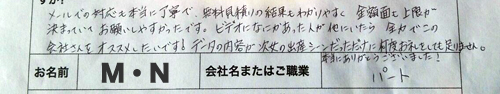 すか?
メールでの対応も本当に丁寧で、無料見積りの結果もわかりやすく 金額面も上限が
決まっていてお願いしやすかったです。ビデオになにかあった人が他にいたら 全力でこの
会社さんをオススメしたいです! データの内容が次女の出産シーンだっただけに何度お礼をしても足りません。
本当にありがとうございました!
お名前 M・N 会社名またはご職業 パート